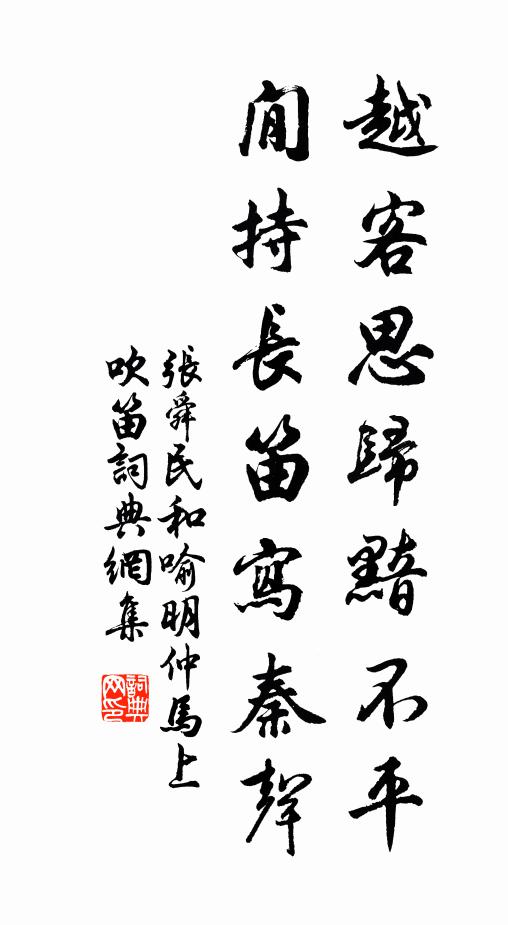 越客思歸黯不平
閒持長笛寫秦聲
張舜民和喻明仲馬上
吹笛詞典網集
詞典
网印